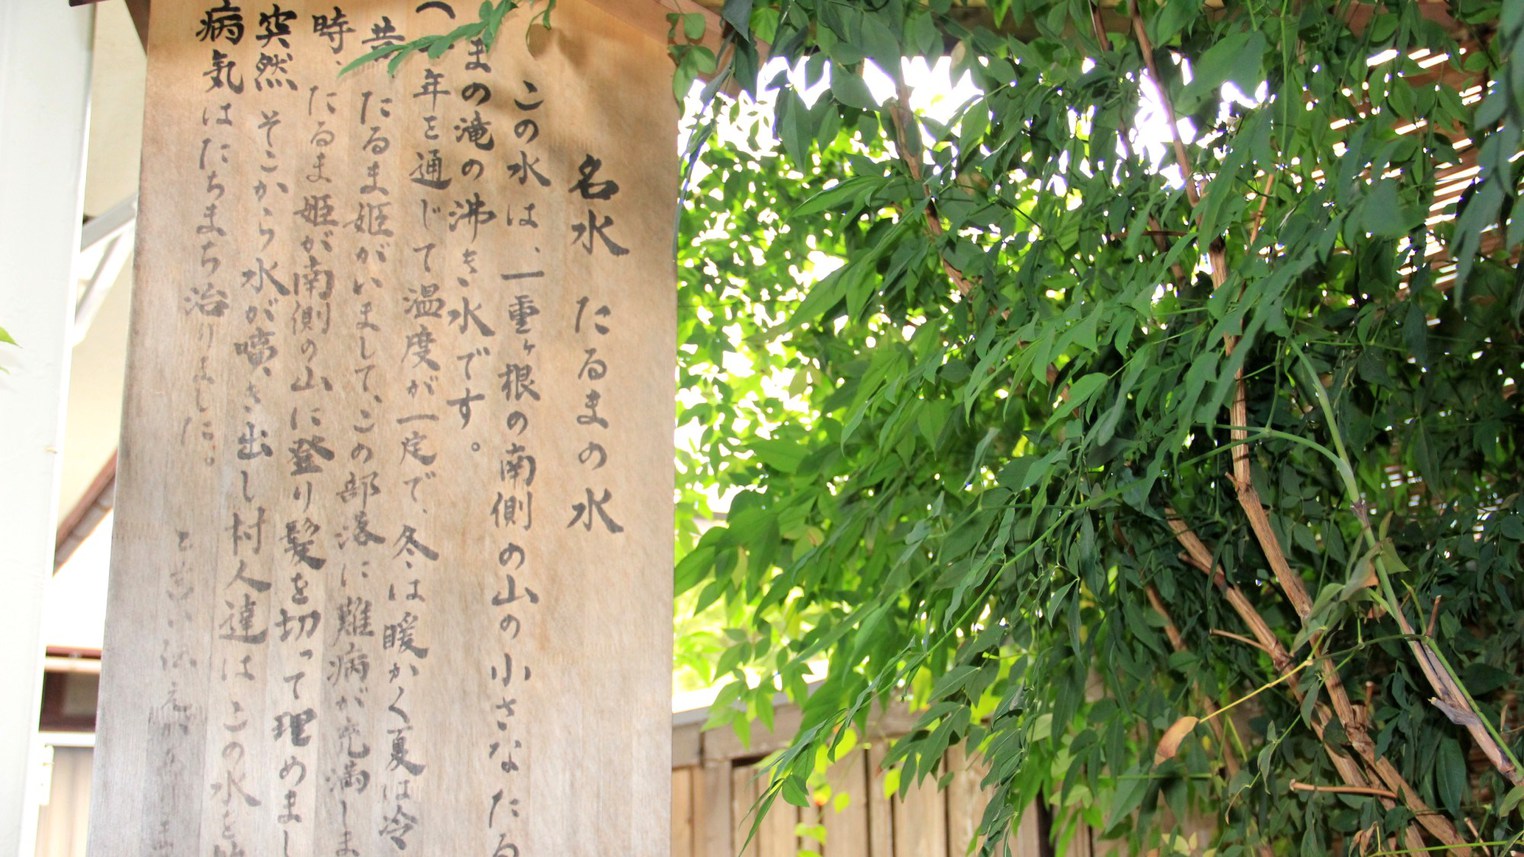 名水 たるまの水
この水は、一重ヶ根の南側の山の小さなたる
まの滝の沸き水です。
年を通じて温度が一定で、冬は暖かく夏は冷
昔、たるま姫がいまして、この部落に難病が充満しま
時、たるま姫が南側の山に登り髪を切って埋めまし
突然そこから水が噴き出し村人達はこの水を
病気はたちまち治りました。
と言い伝え